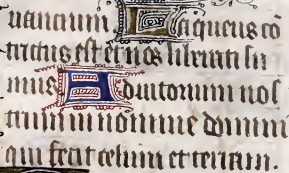 uantium Laqueus cō
tritus est et nos liberati su
mus Adiutorium nos
trum in nomine domini
qui fecit celum et terram.